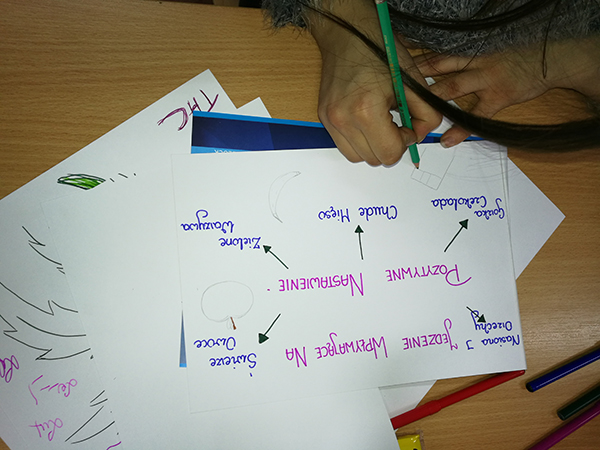 JEDZENIE WPŁYWAJĄCE NA
POZYTYWNE NASTAWIENIE
Nasiona I
Orzechy
Świerze
Owoce
Gorzka
Czekolada
Chude Mięso
Zielone
Warzywa
THC